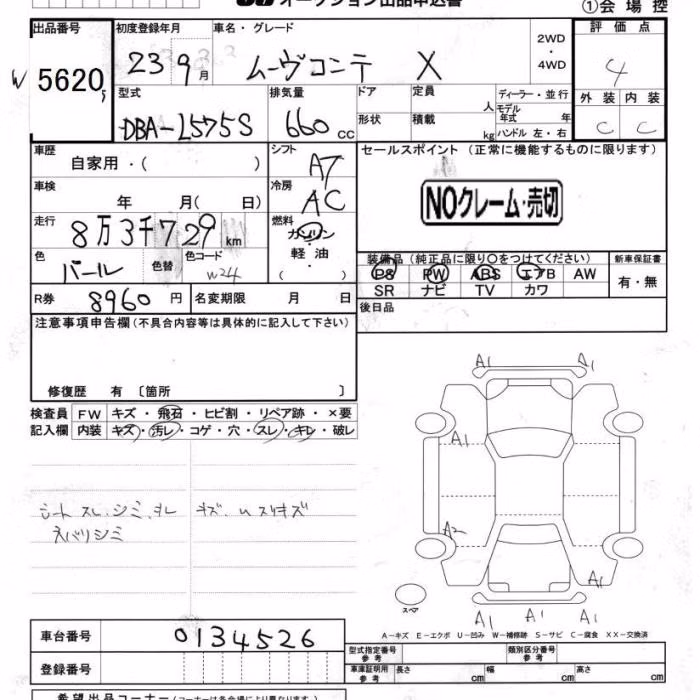 オークション出品申込書
①会場控
出品番号 初度登録年月 車名・グレード 2WD・4WD 評価点
W 5620 23 9月 ムーヴコンテ X 4
型式 排気量 ドア 定員 人 ディーラー・並行 外装 内装
DBA-L575S 660 CC 形状 積載 kg モデル年式 年 ハンドル 左・右 C C
車歴 自家用・( ) シフト AT セールスポイント (正常に機能するものに限ります)
車検 年 月( 日) 冷房 AC NOクレーム・売切
走行 8万3千729 km 燃料 ガソリン・軽油 ( )
色 パール 色替 色コード W24 装備品 (純正品に限り〇をつけてください) 新車保証書
PS PW ABS エアB AW 有・無
SR ナビ TV カワ
R券 8960 円 名変期限 月 日 後日品
注意事項申告欄(不具合内容等は具体的に記入して下さい)
修復歴 有 〔箇所 〕
検査員 FW キズ・飛石・ヒビ割・リペア跡・×要
記入欄 内装 キズ・汚レ・コゲ・穴・スレ・キレ・破レ
A1 A1
A1
A2
A1
A1 A1 A1
シート スレ、シミ、
シミ
スペア
A-キズ E-エクボ U-凹み W-補修跡 S-サビ C-腐食 XX-交換済
車台番号 0134526 型式指定番号 参考 類別区分番号 参考
登録番号 車庫証明用 参考 長さ cm 幅 cm 高さ cm
希望出品コーナー(コーナーは各会場により異なります)